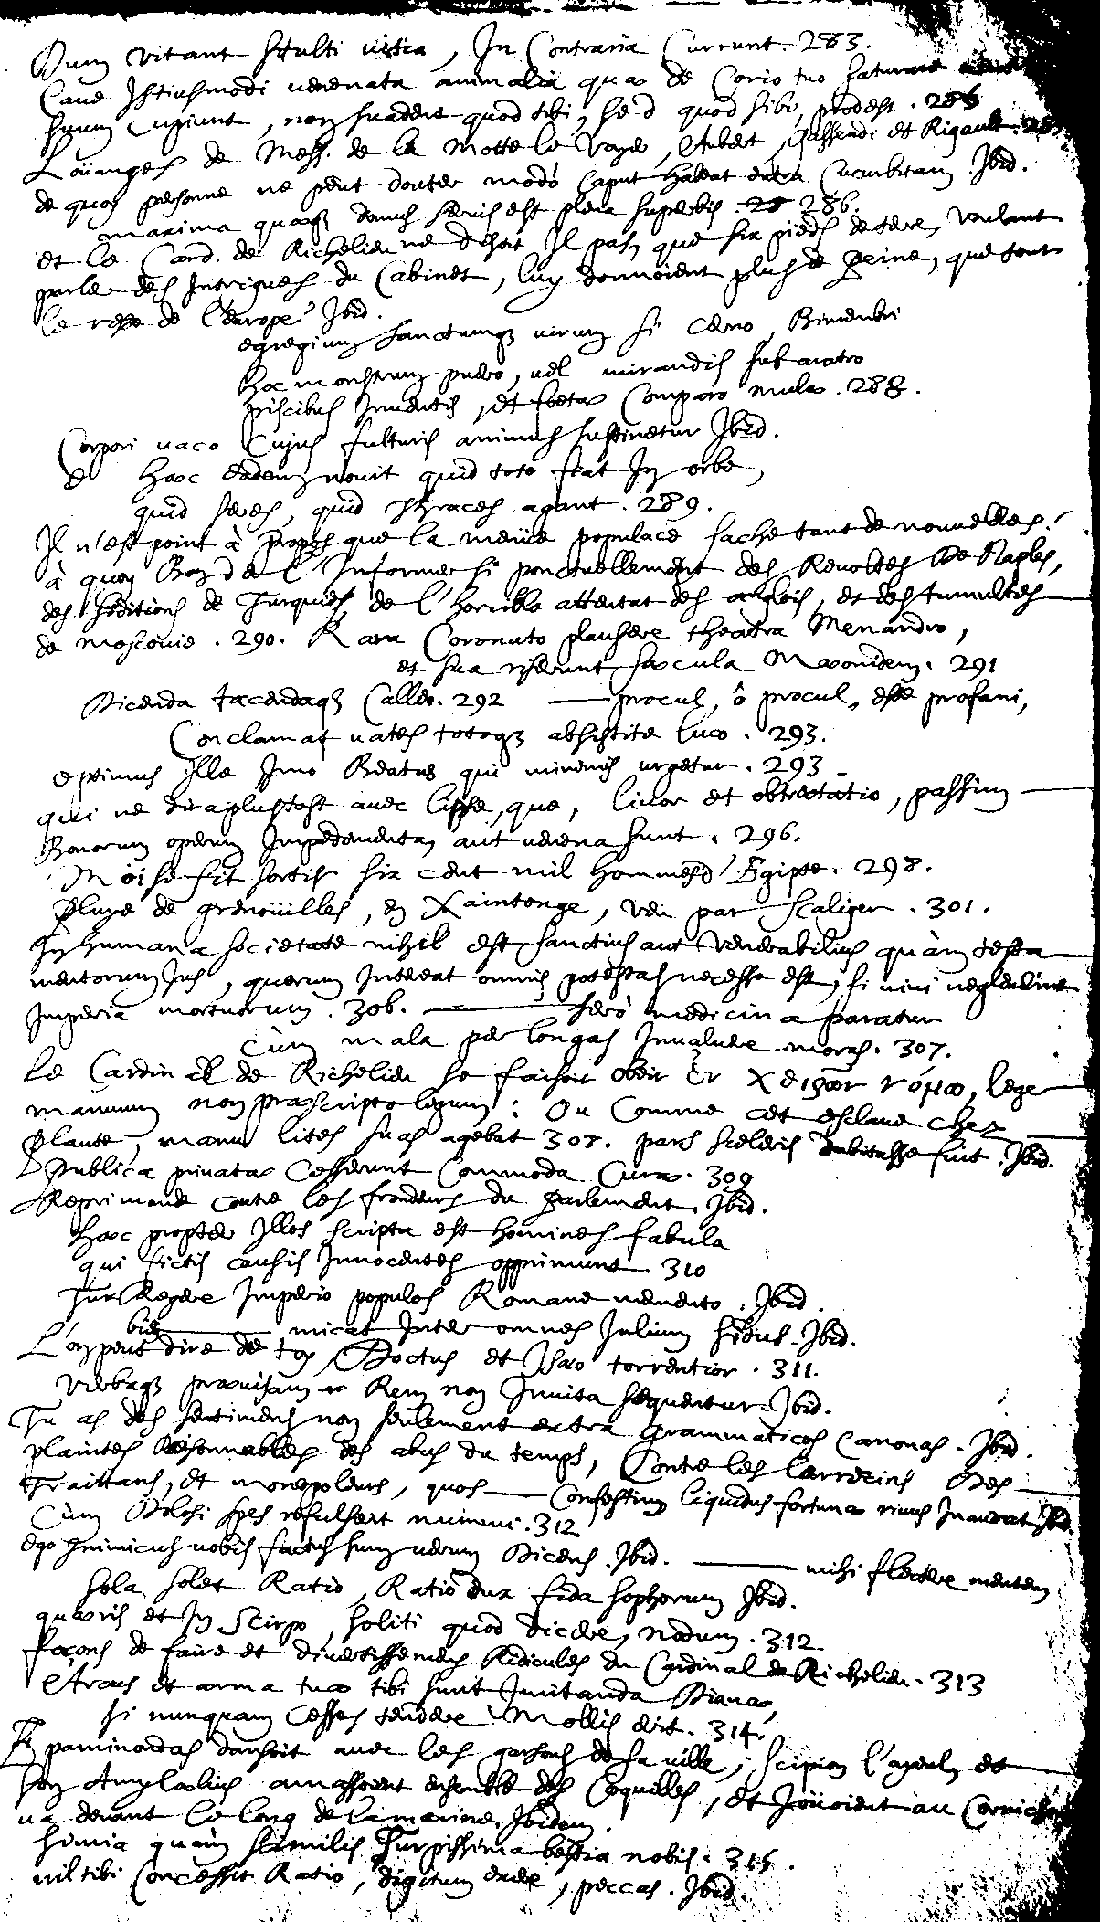 Dum vitant stulti vitia, In Contraria Currunt. 283.
Cave Istiusmodi venenata animalia quae de Corio tuo saturare
suum Cupiunt, non suadent quod tibi, sed quod sibi, prodest. 285
Loüanges de Mess. de la Motte le Vayer, Aubert, Gassendi et Rigault.
de quoy personne ne peut douter modò Caput habeat extra Cucurbitam. Ibid.
maxima quaeq; domus servis est plena superbis. 286.
et le Card. de Richelieu ne disoit Il pas, que six pieds de terre, voulant
parler des Intrigues du Cabinet, luy donnoient plus de peine, que tout
le reste de l'europe? Ibid.
egregium sanctumq; virum si cerno, Bimembri
hoc monstrum puero, vel mirandis sub aratro
piscibus Inventis, et foetae Comparo mulae. 288.
Corpori vaco Cujus fulturis animus sustinetur Ibid.
Haec eadem novit quid toto fiat In orbe,
quid seres, quid Thraces agant. 289.
Il n'est point à propos que la menüe populace sache tant de nouvelles!
à quoy Bon de l'Informer si ponctuellement des Revoltes de Naples,
des séditions de Turquies, de l'horrible attentat des anglois, et des tumultes
de moscovie. 290. Rara Coronato plausere theatra Menandro,
et sua riserunt saecula Maeonidem. 291
Dicenda tacendaq; Calleo. 292 — procul, ô procul, este profani,
Conclamat vates totoq; absistite luco. 293.
optimus Ille Imo Beatus qui minimis urgetur. 293
qui ne dira plustost avec lipse, que, livor et obtrectatio, passim
Bonorum operum Impedimentum aut venena sunt. 296.
Moïse fit sortir six cent mil hommes d'Egipte. 298.
Pluye de grenoüilles, en Xaintonge, veu par Scaliger. 301.
In humana societate nihil est sanctius aut venerabilius quàm testa
mentorum Jus, quorum Intereat omnis potestas necesse est, si vivi neglexerint
Imperia mortuorum. 306. — sero medicina paratur
Cùm mala per longas Invaluere moras. 307.
Le Cardinal de Richelieu se faisoit obeir ἐν χειρῶν νόμῳ, lege
manuum non praescripto legum: Ou Comme cet esclave chez
Plaute, manu lites suas agebat 308. pars sceleris dubitasse fuit. Ibid.
Publica privatae Cesserunt Commoda Curae. 309
Reprimende contre les frondeurs du Parlement. Ibid.
Haec propter Illos scripta est homines fabula
qui fictis causis Innocentes opprimunt 310
Tu Regere Imperio populos Romane memento. Ibid.
— micat Inter omnes Julium sidus. Ibid.
L'on peut dire de toy, Doctus et Isaeo torrentior. 311.
Verbaq; praevisam Rem non Invita sequentur. Ibid.
Tu as des sentimens non seulement extra Grammaticos Canonas. Ibid.
plaintes Résonnables des abus du temps, Contre les larrecins Des
Traittans, et monopoleurs, quos — Confestim liquidus fortunae rivus Inauret Ibid.
Cùm Dolosi spes refulserit nummi. 312
ego Inimicus vobis factus sum verum Dicens. Ibid. — mihi flectere mentem
sola solet Ratio, Ratio dux fida sophorum Ibid.
quaeris et In Scirpo, soliti quod dicere, nodum. 312
façons de faire et divertissemens Ridicules du Cardinal de Richelieu. 313
Arcus et arma tuae tibi sunt Imitanda Dianae,
si nunquam Cesses tendere Mollis erit. 314.
Epaminondas dansoit avec les garsons de sa ville; Scipion l'ayeul, et
son Amy laelius amassoient ensemble des Coquilles, et Joüoient au Cornichon
va devant le long de la marine. Ibidem.
simia quàm similis Turpissima bestia nobis. 315.
nil tibi Concessit Ratio, digitum exere, peccas. Ibid.